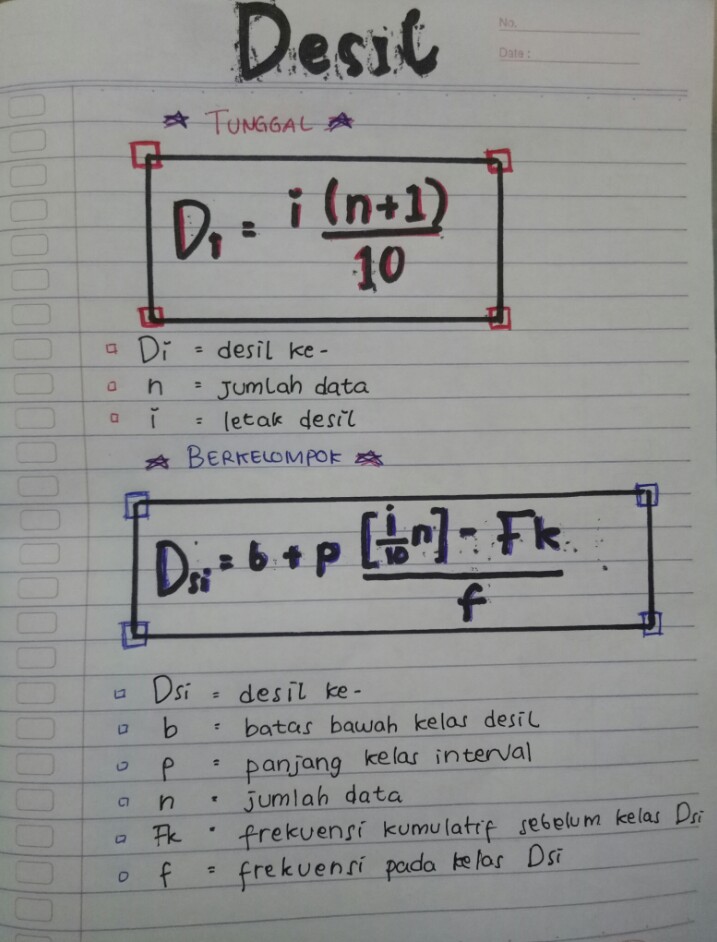 Desil
No.
Date :
TUNGGAL
Di = i (n+1) / 10
Di = desil ke-
n = jumlah data
i = letak desil
BERKELOMPOK
Dsi = b + p [i/10 n] - Fk / f
Dsi = desil ke-
b = batas bawah kelas desil
p = panjang kelas interval
n = jumlah data
Fk = frekuensi kumulatif sebelum kelas Dsi
f = frekuensi pada kelas Dsi